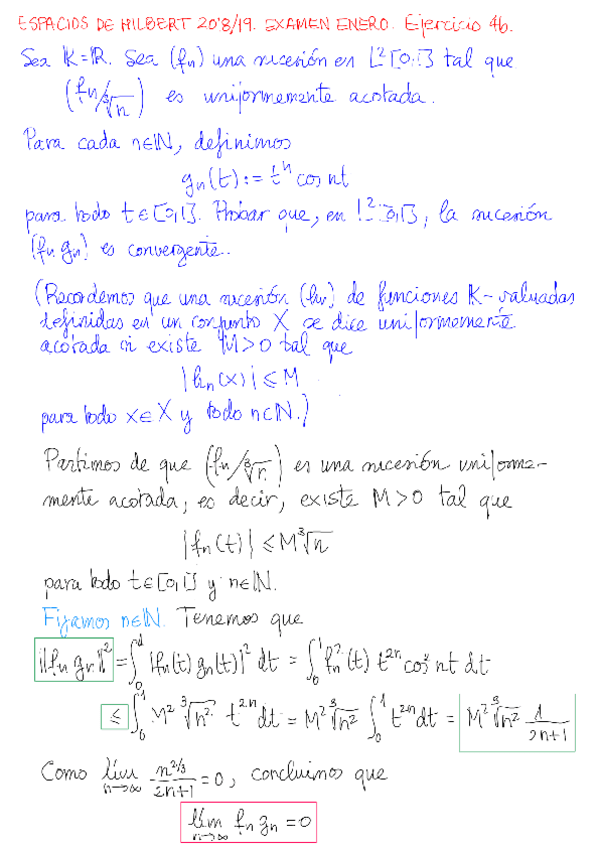 ESPACIOS DE HILBERT 2018/19. EXAMEN ENERO. Ejercicio 4b.
Sea K=R. Sea (fn) una sucesión en L²[0,1] tal que
(fn/∛n) es uniformemente acotada.
Para cada n∈N, definimos
gn(t):= tⁿ cos nt
para todo t∈[0,1]. Probar que, en L²[0,1], la sucesión
(fn gn) es convergente.
(Recordemos que una sucesión (hn) de funciones K-valuadas
definidas en un conjunto X se dice uniformemente
acotada si existe M>0 tal que
|hn(x)| ≤ M
para todo x∈X y todo n∈N.)
Partimos de que (fn/∛n) es una sucesión uniforme-
mente acotada, es decir, existe M>0 tal que
|fn(t)| ≤ M∛n
para todo t∈[0,1] y n∈N.
Fijamos n∈N. Tenemos que
||fn gn||² = ∫₀¹ |fn(t) gn(t)|² dt = ∫₀¹ fn²(t) t²ⁿ cos² nt dt
≤ ∫₀¹ M² ∛n² t²ⁿ dt = M² ∛n² ∫₀¹ t²ⁿ dt = M² ∛n² 1/(2n+1)
Como lím n→∞ n^(2/3)/(2n+1) = 0, concluimos que
lím n→∞ fn gn = 0